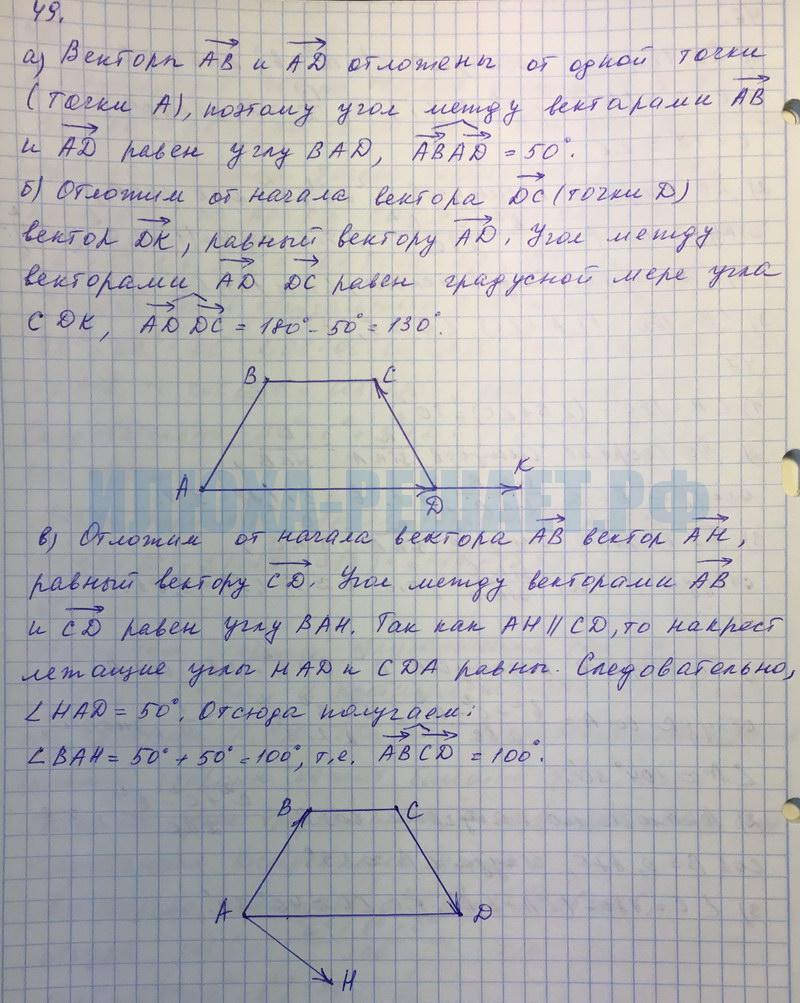 49.
а) Векторы AB и AD отложены от одной точки
(точки А), поэтому угол между вектарами AB
и AD равен углу BAD, ABAD = 50°.
б) Отложим от начала вектора DC (точки D)
вектор DK, равный вектору AD. Угол между
векторами AD DC равен градусной мере угла
CDK, AD DC = 180° - 50° = 130°.
B C
A D K
ИЛЮХА-РЕШАЕТ.РФ
в) Отложим от начала вектора AB вектор AH,
равный вектору CD. Угол между векторами AB
и CD равен углу BAH. Так как AH || CD, то накрест
лежащие углы HAD и CDA равны. Следовательно,
∠HAD = 50°. Отсюда получаем:
∠BAH = 50° + 50° = 100°, т.е. ABCD = 100°.
B C
A D
H